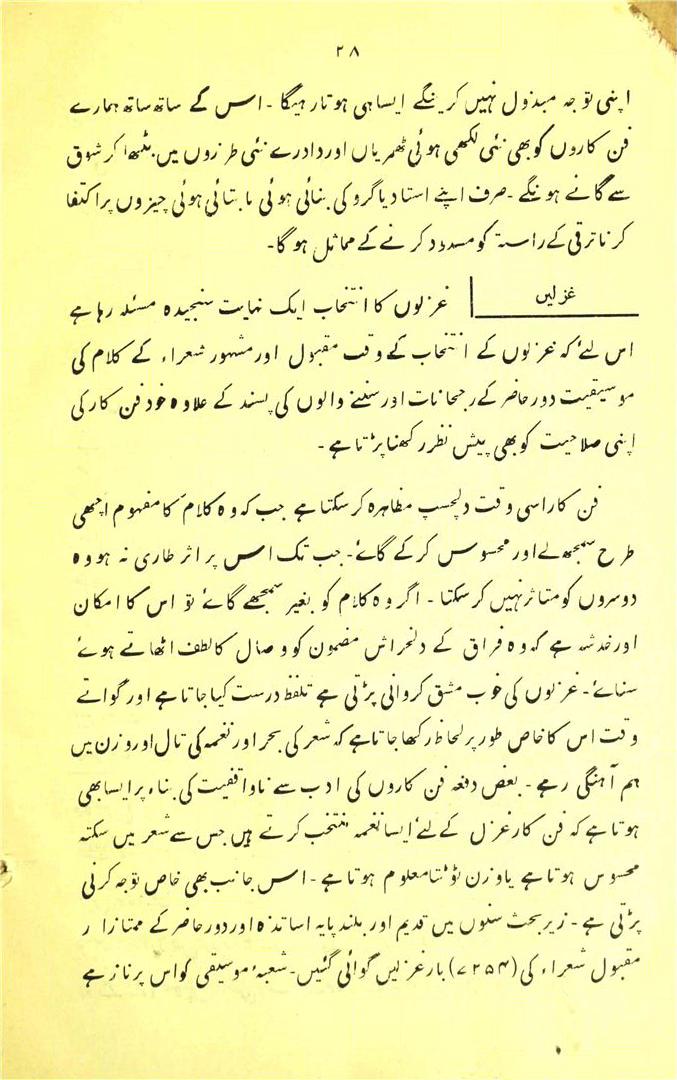 ۲۸
اپنی توجہ مبذول نہیں کرینگے ایسا ہی ہوتا رہیگا ۔ اس کے ساتھ ساتھ ہمارے
فن کاروں کو بھی نئی لکھی ہوئی ٹھمریاں اور دادرے نئی طرزوں میں بٹھا کر شوق
سے گانے ہونگے ۔ صرف اپنے استاد یا گرو کی بنائی ہوئی یا بتائی ہوئی چیزوں پر اکتفا
کرنا ترقی کے راستہ کو مسدود کرنے کے مماثل ہو گا ۔
غزلیں
غزلوں کا انتخاب ایک نہایت سنجیدہ مسئلہ رہا ہے
اس لئے کہ غزلوں کے انتخاب کے وقت مقبول اور مشہور شعراء کے کلام کی
موسیقیت دور حاضر کے رجحانات اور سننے والوں کی پسند کے علاوہ خود فن کار کی
اپنی صلاحیت کو بھی پیش نظر رکھنا پڑتا ہے ۔
فن کار اسی وقت دلچسپ مظاہرہ کر سکتا ہے جب کہ وہ کلام کا مفہوم اچھی
طرح سمجھ لے اور محسوس کر کے گائے ۔ جب تک اس پر اثر طاری نہ ہو وہ
دوسروں کو متاثر نہیں کر سکتا ۔ اگر وہ کلام کو بغیر سمجھے گائے تو اس کا امکان
اور خدشہ ہے کہ وہ فراق کے دلخراش مضمون کو وصال کا لطف اٹھاتے ہوئے
سنائے ۔ غزلوں کی خوب مشق کروانی پڑتی ہے تلفظ درست کیا جاتا ہے اور گواتے
وقت اس کا خاص طور پر لحاظ رکھا جاتا ہے کہ شعر کی بحر اور نغمہ کی تال اور وزن میں
ہم آہنگی رہے ۔ بعض دفعہ فن کاروں کی ادب سے ناواقفیت کی بناء پر ایسا بھی
ہوتا ہے کہ فن کار غزل کے لئے ایسا نغمہ منتخب کرتے ہیں جس سے شعر میں سکتہ
محسوس ہوتا ہے یا وزن ٹوٹتا معلوم ہوتا ہے ۔ اس جانب بھی خاص توجہ کرنی
پڑتی ہے ۔ زیر بحث سنوں میں قدیم اور بلند پایہ اساتذہ اور دور حاضر کے ممتاز ا ر
مقبول شعراء کی (۷۲۵۴) بار غزلیں گوائی گئیں ۔ شعبۂ موسیقی کو اس پر ناز ہے